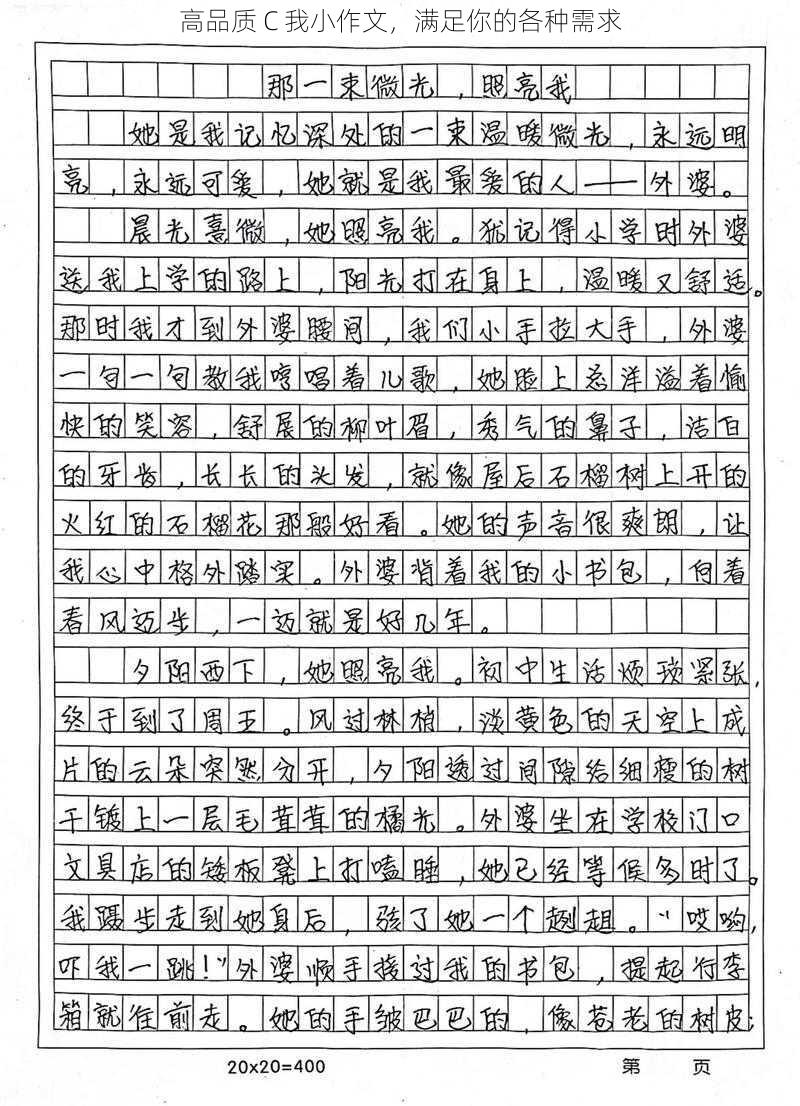 高品质 C 我小作文，满足你的各种需求
那一束微光，照亮我
她是我记忆深处的一束温暖微光，永远明
亮，永远可爱，她就是我最爱的人——外婆。
晨光熹微，她照亮我。犹记得小学时外婆
送我上学的路上，阳光打在身上，温暖又舒适。
那时我才到外婆腰间，我们小手拉大手，外婆
一句一句教我哼唱着儿歌，她脸上总洋溢着愉
快的笑容，舒展的柳叶眉，秀气的鼻子，洁白
的牙齿，长长的头发，就像屋后石榴树上开的
火红的石榴花那般好看。她的声音很爽朗，让
我心中格外踏实。外婆背着我的小书包，向着
春风迈步，一迈就是好几年。
夕阳西下，她照亮我。初中生活烦琐紧张，
终于到了周五。风过林梢，淡黄色的天空上成
片的云朵突然分开，夕阳透过间隙给细瘦的树
干镀上一层毛茸茸的橘光。外婆坐在学校门口
文具店的矮板凳上打嗑睡，她已经等候多时了。
我蹑步走到她身后，骇了她一个趔趄。“哎哟，
吓我一跳！”外婆顺手接过我的书包，提起行李
箱就往前走。她的手皱巴巴的，像苍老的树皮；
20×20=400
第 页